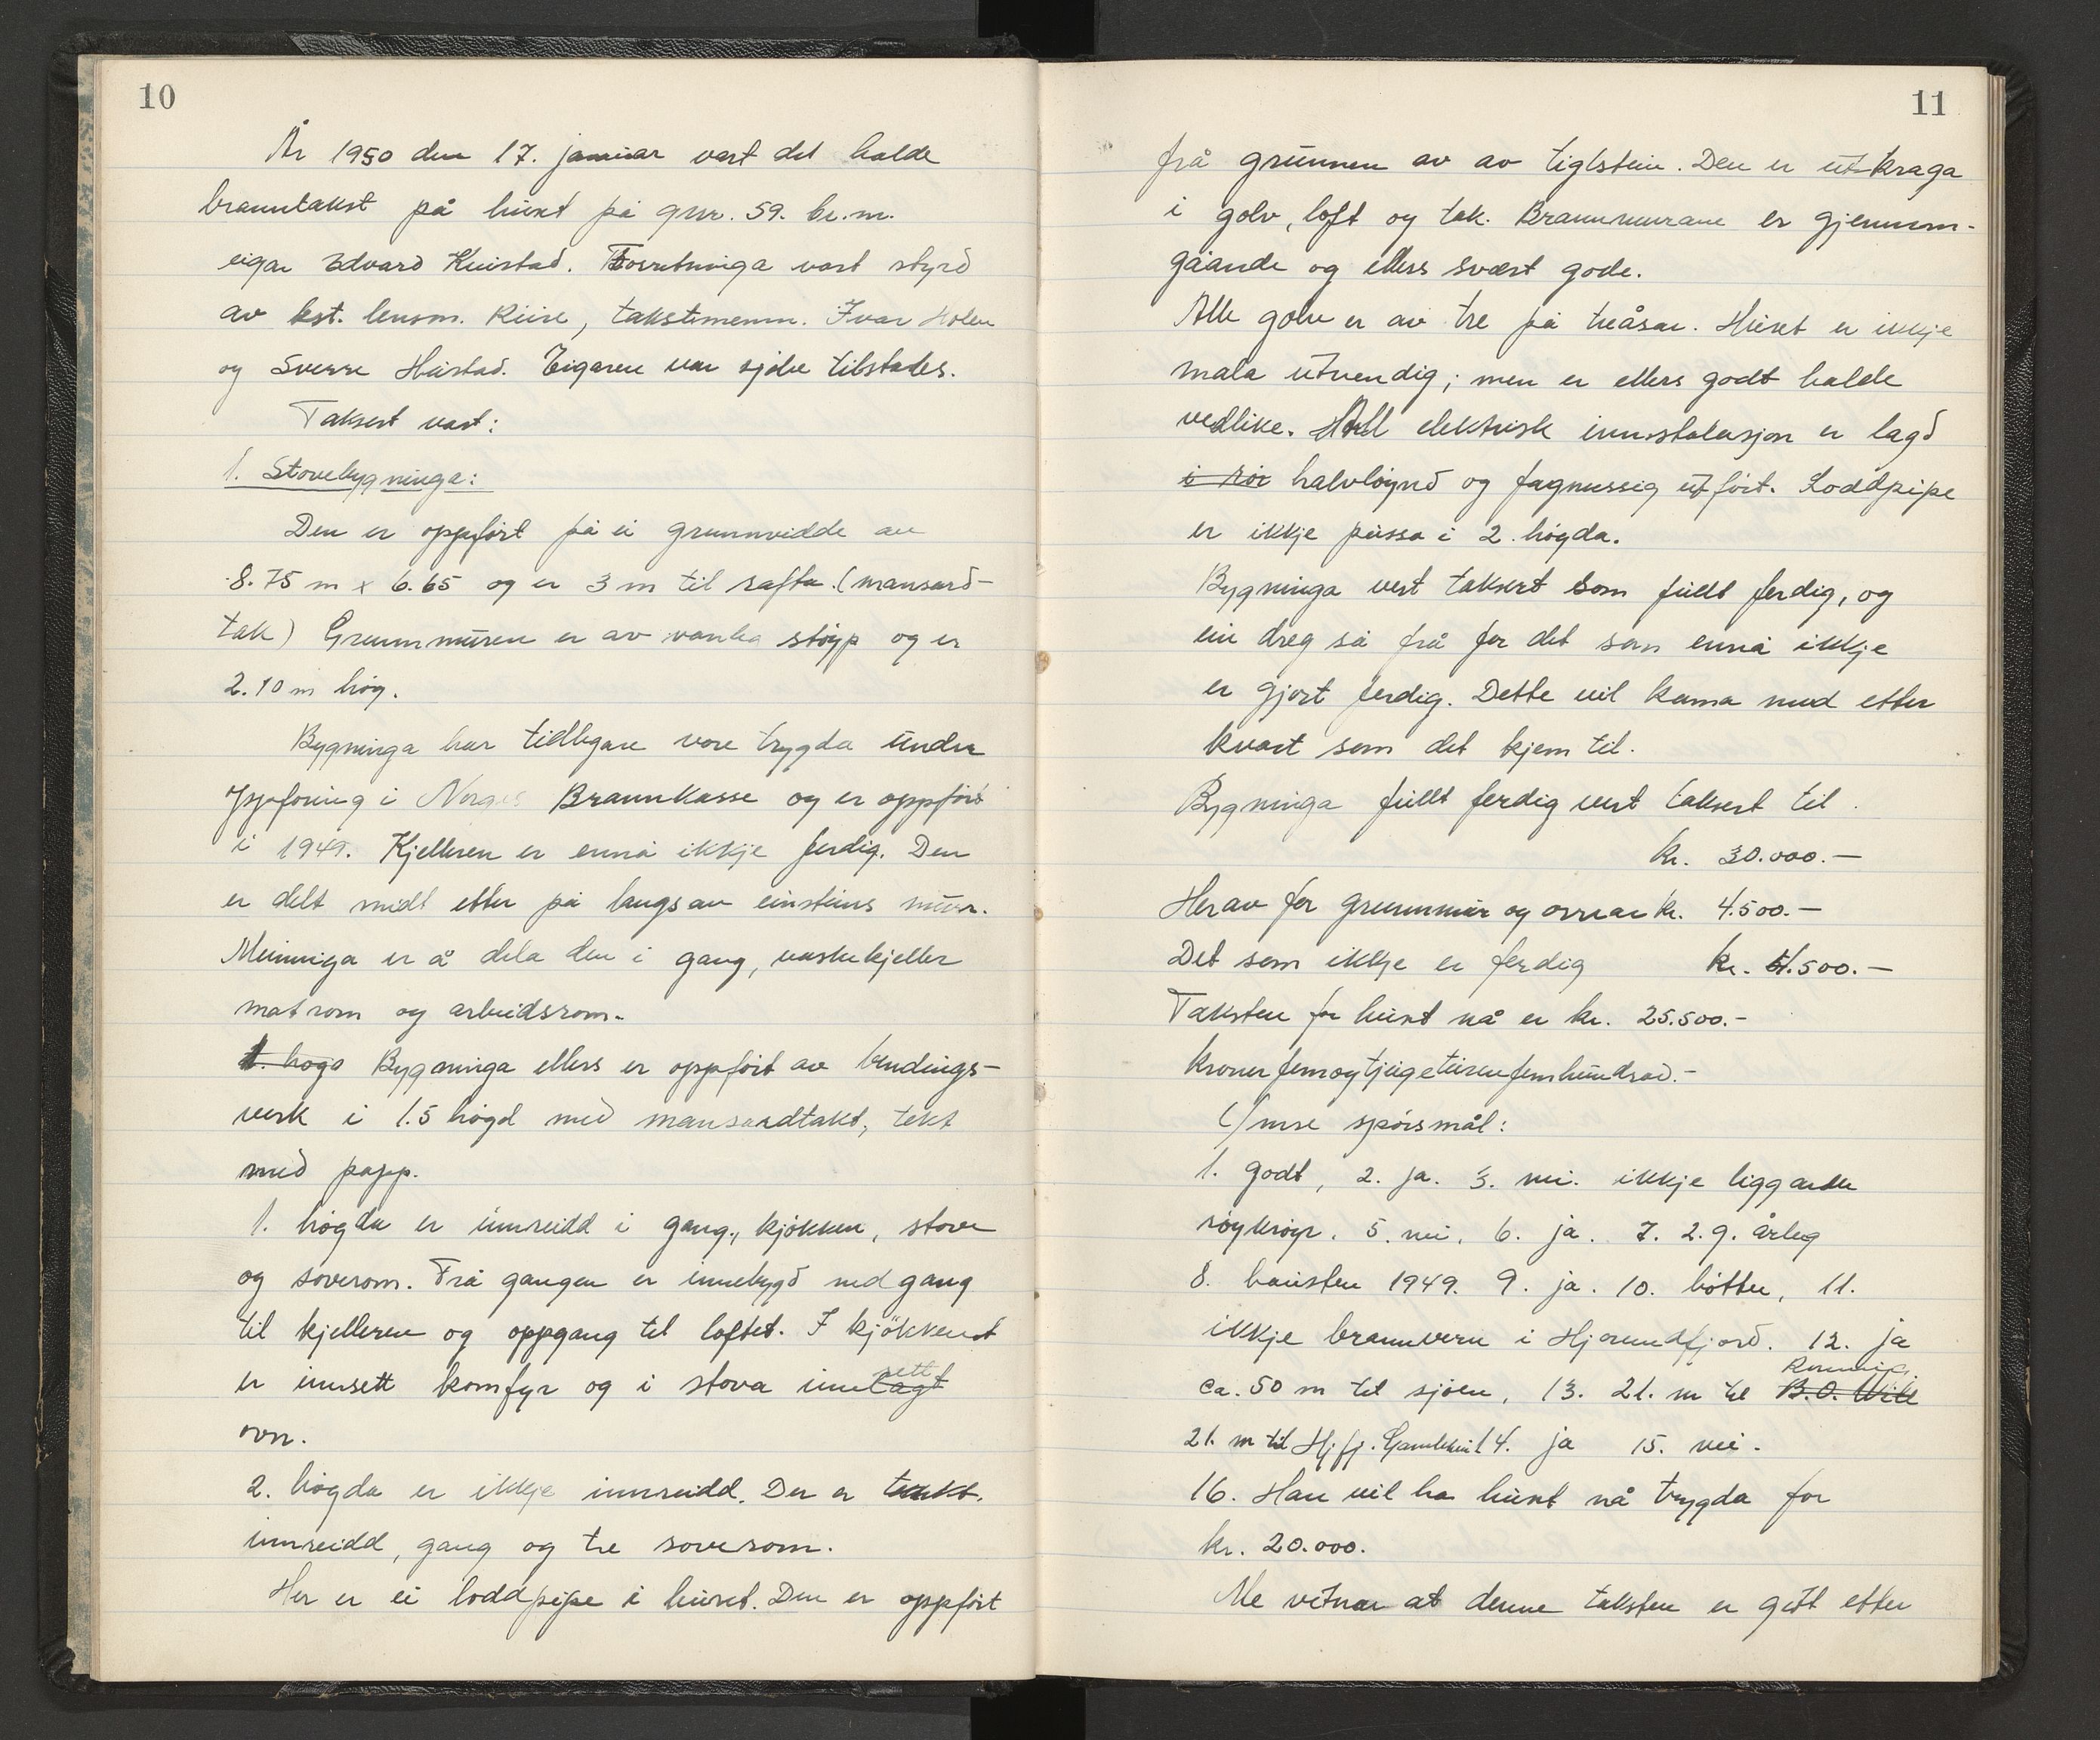 10
År 1950 den 17. januar vart det halde
branntakst på huset på gnr. 59. br.m.
eigar Edvard Huistad. Forretninga vart styrd
av kst. lensm. Riise, takstmenn. Ivar Holen
og Sverre Hustad. Eigaren var sjølv tilstades.
Taksert vart:
1. Stovebygninga:
Den er oppført på ei grunnvidde av
8.75 m x 6.65 og er 3 m til rafta (mansard-
tak) Grunnmuren er av vanleg støyp og er
2.10 m høg.
Bygninga har tidlegare vore trygda under
oppføring i Norges Brannkasse og er oppført
i 1949. Kjelleren er ennå ikkje ferdig. Den
er delt midt etter på langs av einsteins mur.
Meininga er å dela den i gang, vaskekjeller
matrom og arbeidsrom.
1. høgd Bygninga ellers er oppført av bindings-
verk i 1.5 høgd med mansardtakt, tekt
med papp.
1. høgda er innreidd i gang, kjøkken, stove
og soverom. Frå gangen er innebygd nedgang
til kjelleren og oppgang til loftet. I kjökkenet
er innsett komfyr og i stova innlagt sett
ovn.
2. høgda er ikkje innreidd. Der er tenkt
innreidd, gang og tre soverom.
Her er ei loddpipe i huset. Den er oppført
11
frå grunnen av av tiglstein. Den er utkraga
i golv, loft og tak. Brannmurane er gjennom-
gåande og ellers svært gode.
Alle golv er av tre på treåsar. Huset er ikkje
mala utvendig; men er ellers godt halde
vedlike. All elektrisk innstalasjon er lagd
i rör halvløynd og fagmessig utført. Loddpipe
er ikkje pussa i 2. høgda.
Bygninga vert taksert som fullt ferdig, og
ein dreg så frå for det som ennå ikkje
er gjort ferdig. Dette vil koma med etter
kvart som det kjem til.
Bygninga fullt ferdig vert taksert til
kr. 30.000.—
Herav for grunnmur og omnar kr. 4.500.—
Det som ikkje er ferdig kr. 4.500.—
Taksten for huset nå er kr. 25.500.-
kroner femogtjugetusenfemhundrad.-
Ymse spörsmål:
1. godt, 2. ja. 3. nei. ikkje liggande
røykrøyr. 5. nei. 6. ja. 7. 2. g. årleg
8. hausten 1949. 9. ja. 10. bötter, 11.
ikkje brannvern i Hjørundfjord. 12. ja
ca. 50 m til sjöen, 13. 21. m til B.O. Wik
21. m til Hj.fj. 14. ja 15. nei.
16. Han vil ha huset nå trygda for
kr. 20.000.
Me vitnar at denne taksten er gitt etter